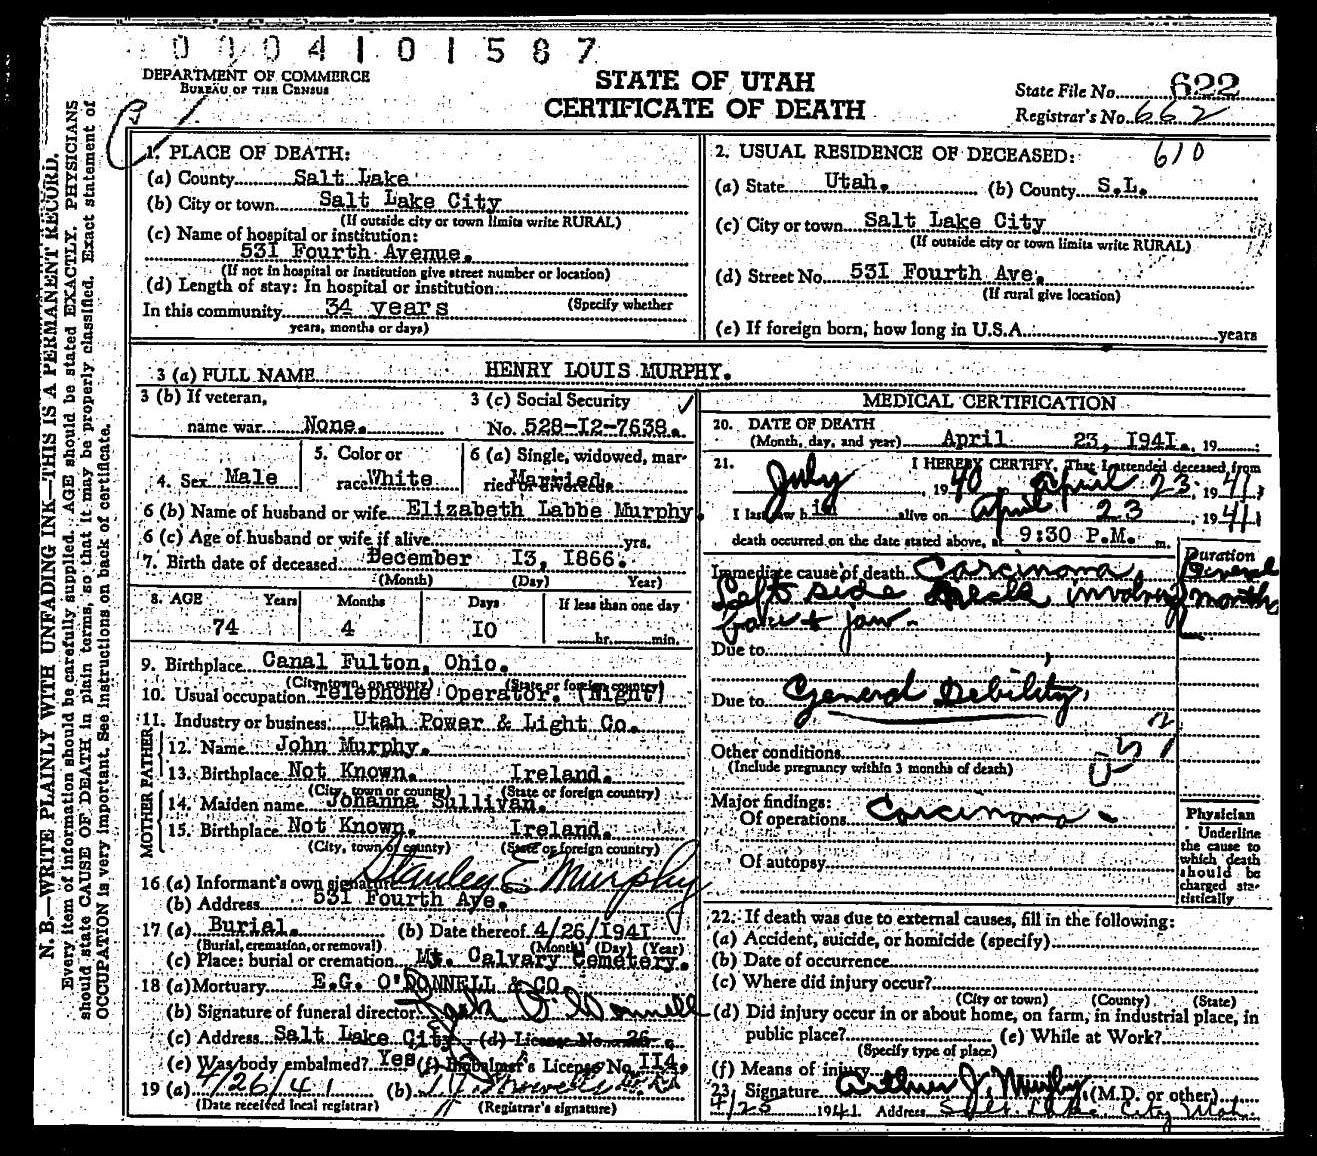 0004101587
DEPARTMENT OF COMMERCE
BUREAU OF THE CENSUS
STATE OF UTAH
CERTIFICATE OF DEATH
State File No. 622
Registrar's No. 662
N. B.—WRITE PLAINLY WITH UNFADING INK—THIS IS A PERMANENT RECORD.
Every item of information should be carefully supplied. AGE should be stated EXACTLY. PHYSICIANS
should state CAUSE OF DEATH in plain terms, so that it may be properly classified. Exact statement of
OCCUPATION is very important. See instructions on back of certificate.
1. PLACE OF DEATH:
(a) County Salt Lake
(b) City or town Salt Lake City
(If outside city or town limits write RURAL)
(c) Name of hospital or institution:
531 Fourth Avenue.
(If not in hospital or institution give street number or location)
(d) Length of stay: In hospital or institution
In this community 34 years (Specify whether
years, months or days)
2. USUAL RESIDENCE OF DECEASED: 610
(a) State Utah. (b) County S.L.
(c) City or town Salt Lake City
(If outside city or town limits write RURAL)
(d) Street No. 531 Fourth Ave.
(If rural give location)
(e) If foreign born, how long in U.S.A. years
3 (a) FULL NAME HENRY LOUIS MURPHY.
3 (b) If veteran, name war None.
3 (c) Social Security No. 528-12-7638.
4. Sex Male
5. Color or race White
6 (a) Single, widowed, married or divorced. Married.
6 (b) Name of husband or wife Elizabeth Labbe Murphy.
6 (c) Age of husband or wife if alive yrs.
7. Birth date of deceased December 13, 1866.
(Month) (Day) Year)
8. AGE Years Months Days If less than one day
74 4 10 hr. min.
9. Birthplace Canal Fulton, Ohio.
(City, town, or county) (State or foreign country)
10. Usual occupation Telephone Operator. (Night)
11. Industry or business Utah Power & Light Co.
FATHER
12. Name John Murphy.
13. Birthplace Not Known. Ireland.
(City, town or county) (State or foreign country)
MOTHER
14. Maiden name Johanna Sullivan.
15. Birthplace Not Known. Ireland.
(City, town or county) (State or foreign country)
16 (a) Informant's own signature Stanley E Murphy
(b) Address 531 Fourth Ave.
17 (a) Burial. (b) Date thereof 4/26/1941
(Burial, cremation, or removal) (Month) (Day) (Year)
(c) Place: burial or cremation Mt. Calvary Cemetery.
18 (a) Mortuary E.G. O'DONNELL & CO.
(b) Signature of funeral director O'Donnell
(c) Address Salt Lake City (d) License No. 26
(e) Was body embalmed? Yes (f) Embalmer's License No. 114.
19 (a) 4/26/41 (b)
(Date received local registrar) (Registrar's signature)
MEDICAL CERTIFICATION
20. DATE OF DEATH
(Month, day, and year) April 23, 1941. 19
21. I HEREBY CERTIFY, That I attended deceased from
July, 1940, April 23, 1941;
I last saw him alive on April 23, 1941;
death occurred on the date stated above, at 9:30 P.M. m.
Duration
Immediate cause of death Carcinoma, Several
Left side neck involving months
face & jaw.
Due to
Due to General Debility,
Other conditions
(Include pregnancy within 3 months of death)
Major findings:
Of operations Carcinoma
Of autopsy
Physician
Underline
the cause to
which death
should be
charged sta-
tistically
22. If death was due to external causes, fill in the following:
(a) Accident, suicide, or homicide (specify)
(b) Date of occurrence
(c) Where did injury occur?
(City or town) (County) (State)
(d) Did injury occur in or about home, on farm, in industrial place, in
public place? (e) While at Work?
(Specify type of place)
(f) Means of injury
23. Signature Arthur J. Murphy, (M.D. or other)
4/25 1941. Address Salt Lake City Utah.